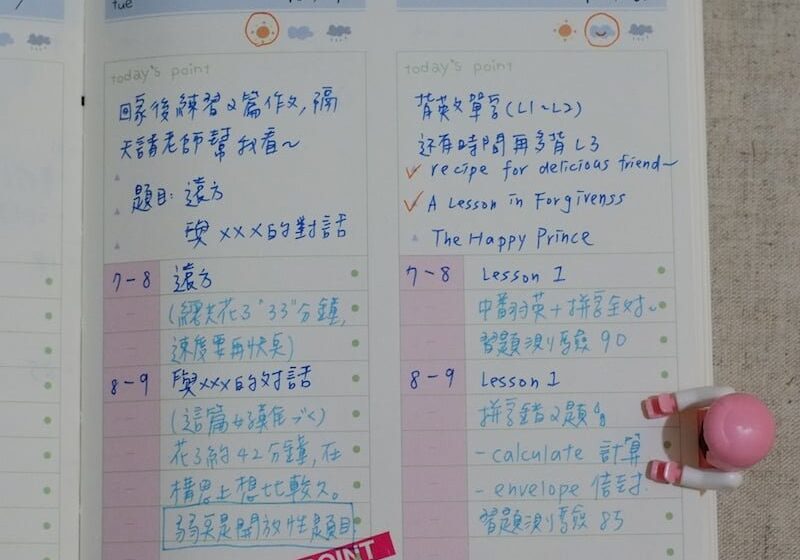 tue
today's point
回家後練習2篇作文,隔
天請老師幫我看~
題目: 遠方
與xxx的對話
7-8 遠方
(總共花了"33"分鐘,
速度要再快點)
8-9 與xxx的对話
(這篇好難ㄛㄑ)
花了約42分鐘,在
構思上想比較久。
弱項是開放性題目
POINT
today's point
背英文單字(L1~L2)
还有時間再多背L3
✓ recipe for delicious friend~
✓ A Lesson in Forgivenss
The Happy Prince
7-8 Lesson 1
中翻英+拼字全对~
習題測驗 90
8-9 Lesson 1
拼字錯2題
- calculate 計算
- envelope 信封
習題測驗 85